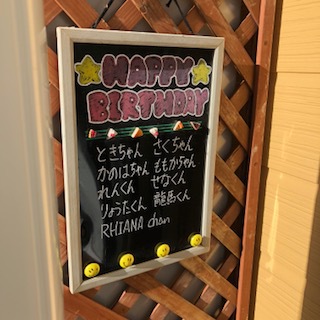 HAPPY
BIRTHDAY
ときちゃん さくちゃん
かのはちゃん ももかちゃん
れんくん せなくん
りょうたくん 龍馬くん
RHIANA chan